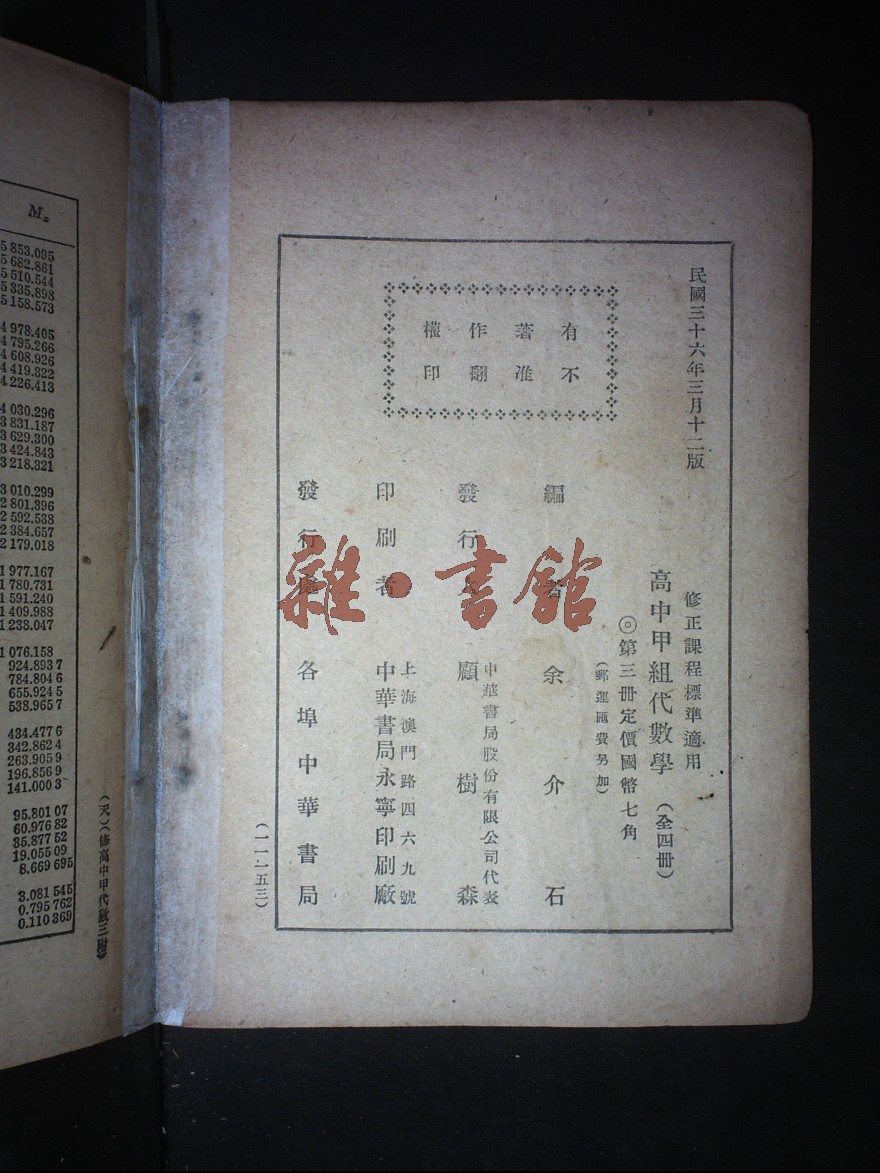 民國三十六年三月十二版
有著作權
不准翻印
修正課程標準適用
高中甲組代數學（全四冊）
◎第三冊定價國幣七角
（郵運匯費另加）
編者 余介石
中華書局股份有限公司代表
發行人 顧樹森
上海澳門路四六九號
印刷者 中華書局永寧印刷廠
發行處 各埠中華書局
（一一一五三）
雜·書館
M₌
5 853.095
5 682.861
5 510.544
5 335.898
5 158.573
4 978.405
4 795.266
4 608.926
4 419.322
4 226.413
4 030.296
3 831.187
3 629.300
3 424.843
3 218.321
3 010.299
2 801.396
2 592.538
2 384.657
2 179.018
1 977.167
1 780.731
1 591.240
1 409.988
1 238.047
1 076.158
924.893 7
784.804 6
655.924 5
538.965 7
434.477 6
342.862 4
263.905 9
196.856 9
141.000 3
95.801 07
60.976 82
35.877 52
19.055 09
8.669 695
3.081 545
0.795 762
0.110 369
（天）（修高中甲代數三附）